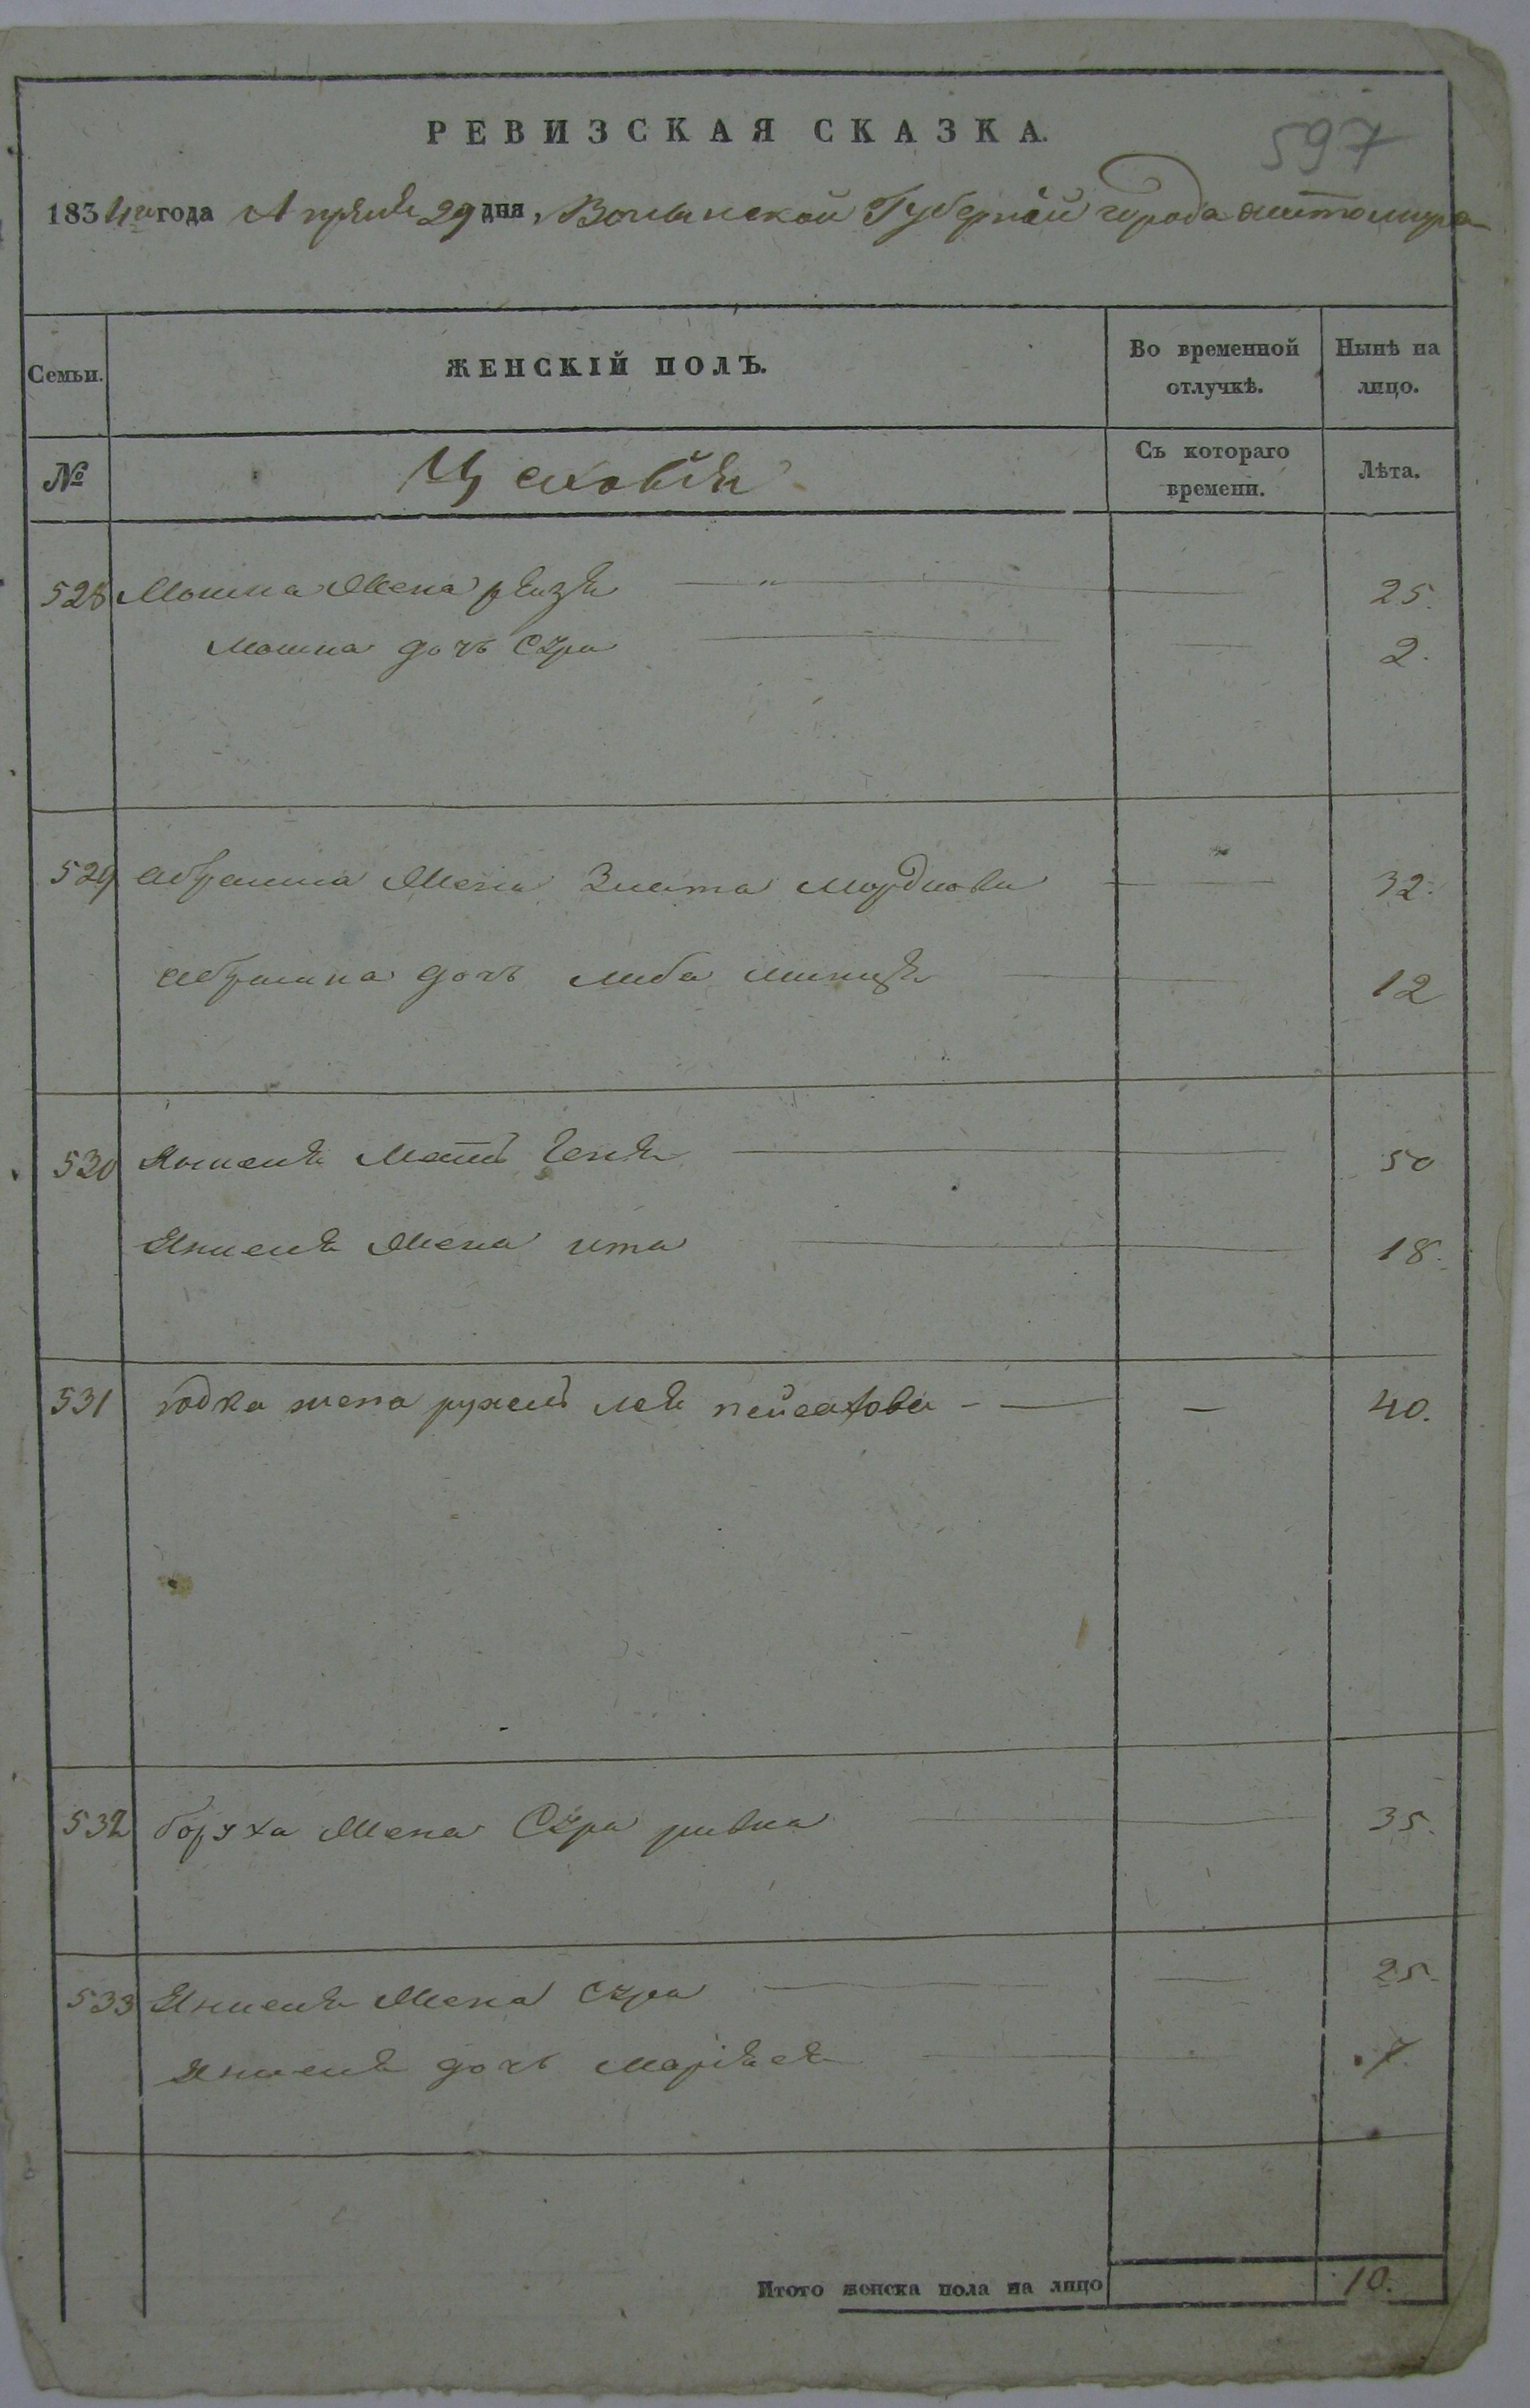 РЕВИЗСКАЯ СКАЗКА.
597
1834го года Апреля 29 дня, Волынской Губерніи города Житомира
Семьи.
ЖЕНСКІЙ ПОЛЪ.
Во временной отлучкѣ.
Нынѣ на лицо.
№
Съ котораго времени.
Лѣта.
528 Мошка Жена рейзя 25.
Мошка дочь Сура 2.
529 Абрамша Жена Злата Мордкова 32.
Абрамша дочь Либа 12
530 Мать Геня 50
Жена ита 18.
531 юдка жена рухель лея пейсахова 40.
532 боруха Жена Сура ривка 35.
533 Жена Сура 25.
дочь Маріяся 7.
Итого женска пола на лицо 10.